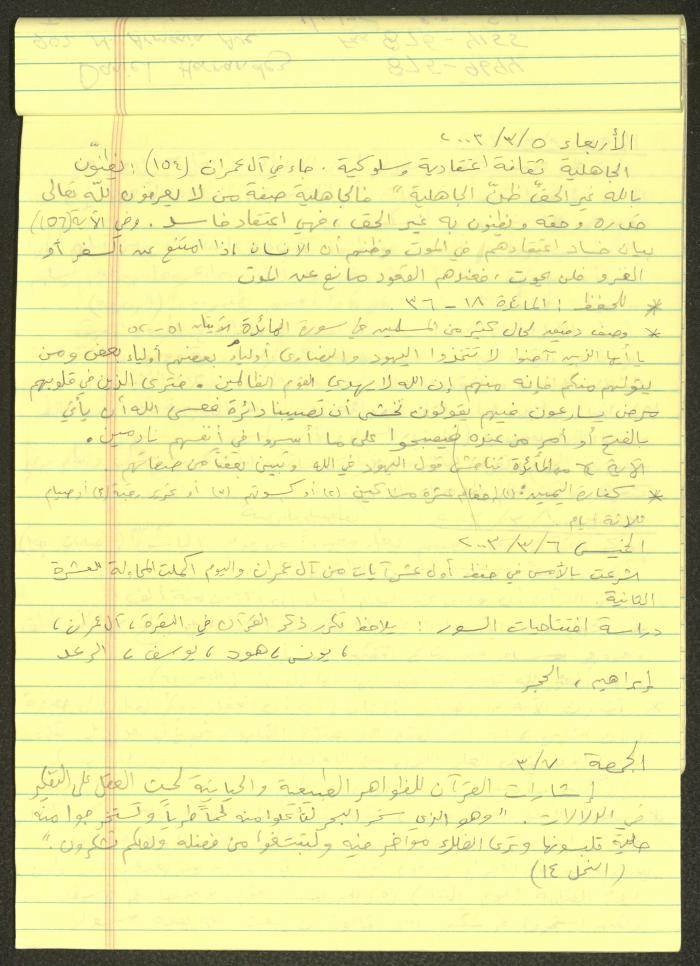 الأربعاء ٢٠٠٣/٣/٥
الجاهلية ثقافة اعتقادية وسلوكية. جاء في آل عمران (١٥٤): يظنّون
بالله غير الحقّ ظنّ الجاهلية" فالجاهلية صفة من لا يعرفون لله تعالى
قدره وحقه ويظنون به غير الحق، فهي اعتقاد فاسد. وفي الآية (١٥٦)
بيان فساد اعتقادهم في الموت وظنهم أن الانسان اذا امتنع عن السفر أو
الغزو فلن يموت، فعندهم القعود مانع عن الموت
* للحفظ: المائدة ١٨ - ٣٦.
* وصف دقيق لحال كثير من المسلمين في سورة المائدة الآيتان ٥١-٥٢
يا أيها الذين آمنوا لا تتخذوا اليهود والنصارى أولياء بعضهم أولياء بعض ومن
يتولهم منكم فإنه منهم إن الله لا يهدي القوم الظالمين. فترى الذين في قلوبهم
مرض يسارعون فيهم يقولون نخشى أن تصيبنا دائرة فعسى الله أن يأتي
بالفتح أو أمر من عنده فيصبحوا على ما أسروا في أنفسهم نادمين.
الآية من المائدة تناقش قول اليهود في الله وتبين بعضاً من صفاتهم
* كفارة اليمين: (١) إطعام عشرة مساكين (٢) أو كسوتهم (٣) أو تحرير رقبة (٤) أو صيام
ثلاثة أيام.
الخميس ٢٠٠٣/٣/٦
شرعت بالأمس في حفظ أول عشر آيات من آل عمران واليوم اكملت المحاولة للعشرة
الثانية.
دراسة افتتاحيات السور: يلاحظ تكرر ذكر القرآن في البقرة، آل عمران،
، يونس، هود، يوسف، الرعد
إبراهيم، الحجر
الجمعة ٣/٧
إشارات القرآن للظواهر الطبيعية والحياتية لحث العقل على التفكير
في الدلالات. "وهو الذي سخر البحر لتأكلوا منه لحماً طرياً وتستخرجوا منه
حلية تلبسونها وترى الفلك مواخر فيه ولتبتغوا من فضله ولعلكم تشكرون."
(النحل ١٤)